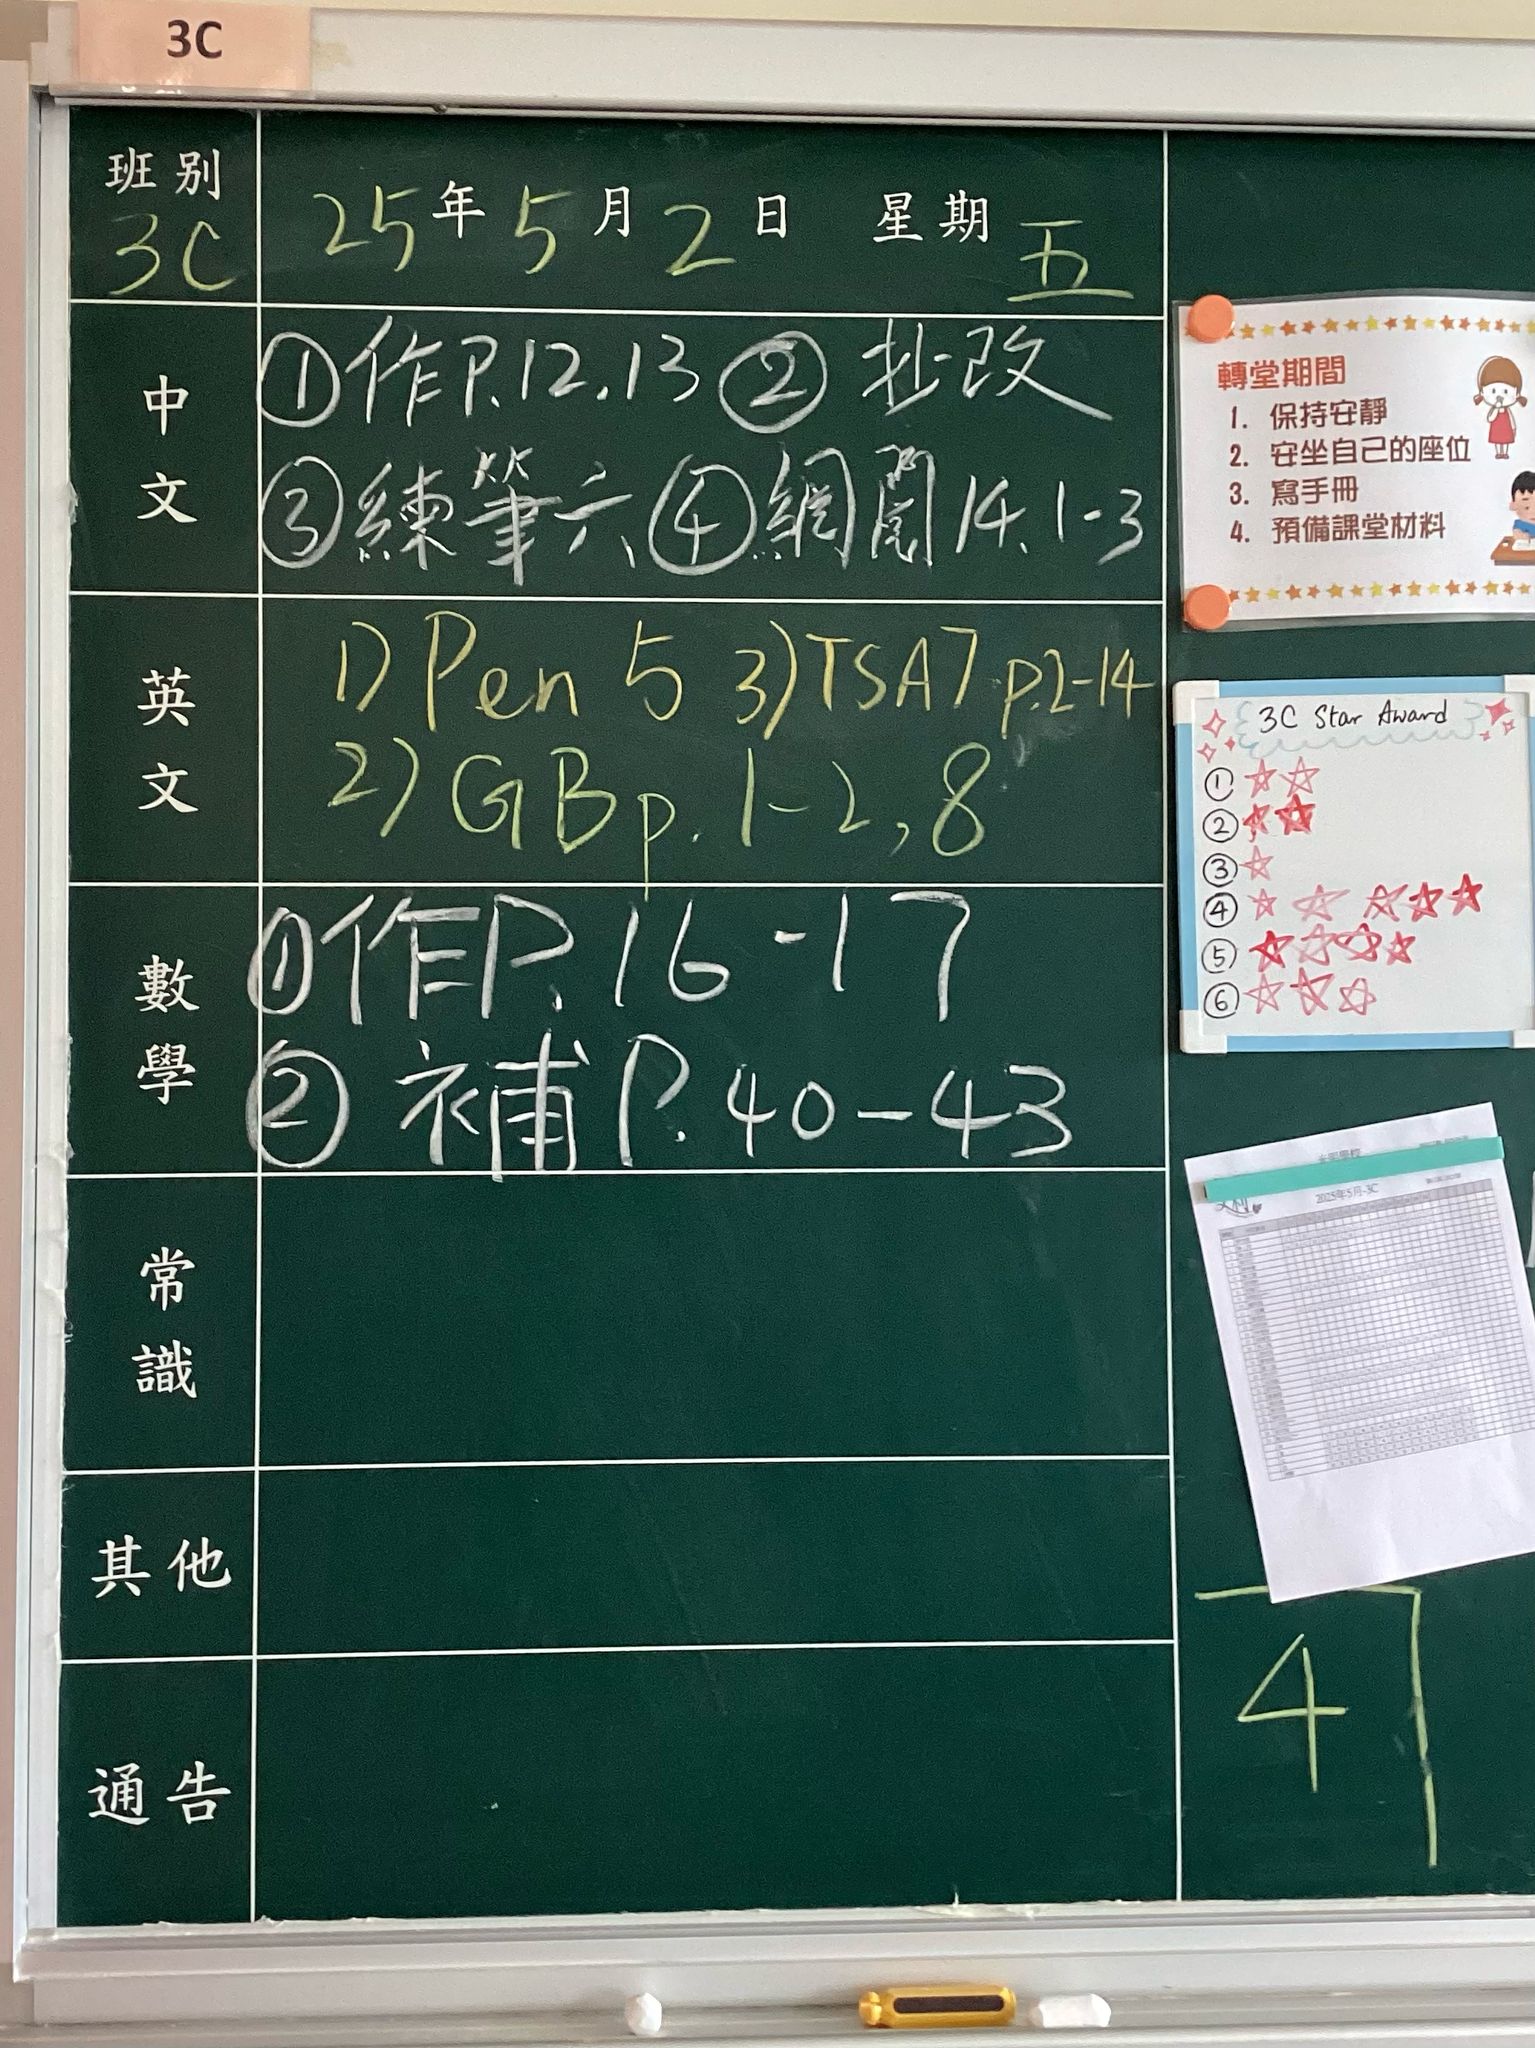 3C
班別
3C
25年5月2日 星期五
中文
①作P.12,13 ②抄改
③練筆六 ④網閱14.1-3
英文
1) Pen 5 3) TSA7 p.2-14
2) GB p. 1-2, 8
數學
①作P.16-17
②補P.40-43
常識
其他
通告
轉堂期間
1. 保持安靜
2. 安坐自己的座位
3. 寫手冊
4. 預備課堂材料
3C Star Award
①
②
③
④
⑤
⑥
2025年5月-3C
4